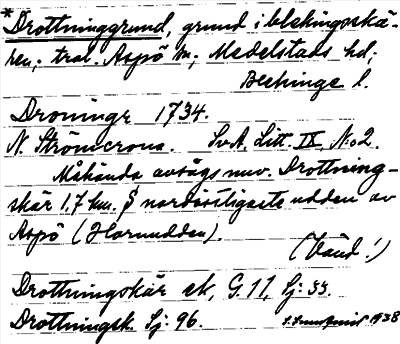 *Drottninggrund, grund i blekingeskä-
ren, trol. Aspö sn, Medelstads hd,
Blekinge l.
Droningr 1734.
N. Strömcrona. SvA. Litt. IX, No 2.
Måhända avsågs nuv. Drottning-
skär 1,7 km. § nordöstligaste udden av
Aspö (Hornudden).
(Vänd!)
Drottningskär ek, G. 11, Sj: 33.
Drottningsk. Sj: 96. 1938